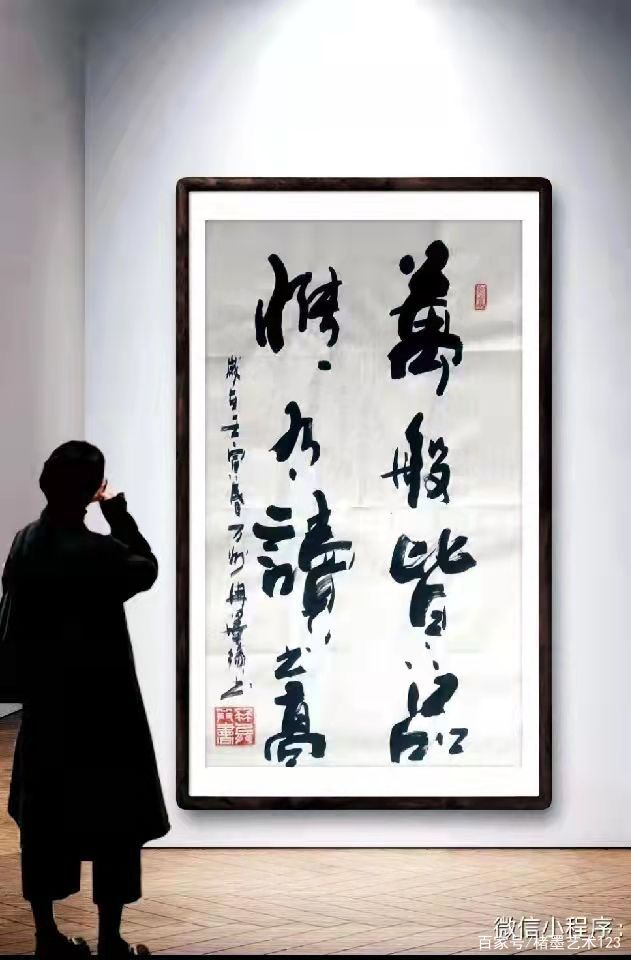 萬般皆下品
惟有讀书高
歲在壬寅春万州
微信小程序:
百家号/楮墨艺术123